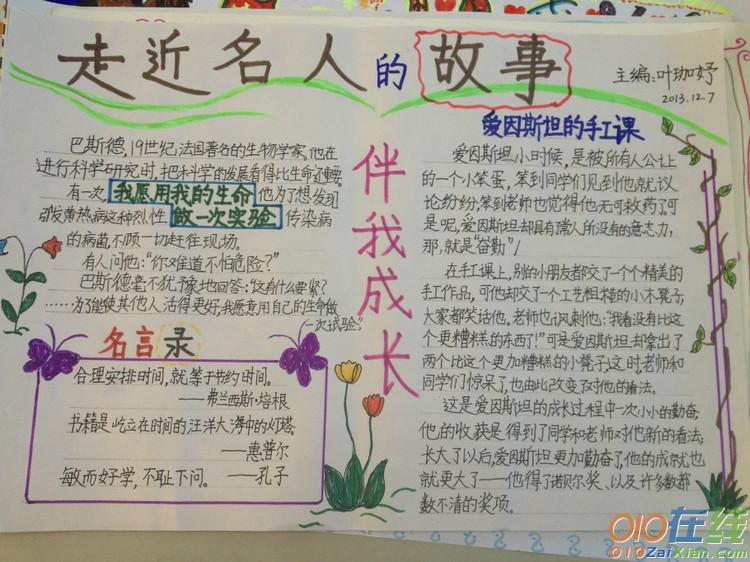 走近名人的故事
主编:叶珈妤
2013.12.7
巴斯德,19世纪法国著名的生物学家。他在
进行科学研究时,把科学的发展看得比生命还重要。
有一次 我愿用我的生命 他为了想发现
引发黄热病这种烈性 做一次实验 传染病
的病菌,不顾一切赶往现场。
有人问他:“你难道不怕危险?”
巴斯德毫不犹豫地回答:“这有什么要紧?
……为了能使其他人活得更好,我愿意用自己的生命做
一次试验”
名言录
合理安排时间,就等于节约时间。
——弗兰西斯·培根
书籍是屹立在时间的汪洋大海中的灯塔
——惠普尔
敏而好学,不耻下问。——孔子
伴我成长
爱因斯坦的手工课
爱因斯坦小时候,是被所有人公认
的一个小笨蛋,笨到同学们见到他就议
论纷纷,笨到老师也觉得他无可救药了。可
是呢,爱因斯坦却具有常人所没有的意志力,
那,就是“奋勤”!
在手工课上,别的小朋友都交了一个个精美的
手工作品,可他却交了一个工艺粗糙的小木凳子,
大家都笑话他。老师也讽刺他:“我看没有比这
个更糟糕的东西了!”可是爱因斯坦却拿出了
两个比这个更加糟糕的小凳子。这时,老师和
同学们惊呆了,也由此改变了对他的看法。
这是爱因斯坦的成长过程中一次小小的勤奋,
他的收获是得到了同学和老师对他新的看法;
长大了以后,爱因斯坦更加勤奋了,他的成就也
就更大了——他得了诺贝尔奖、以及许多数都
数不清的奖项。
010在线
010ZaiXian.com